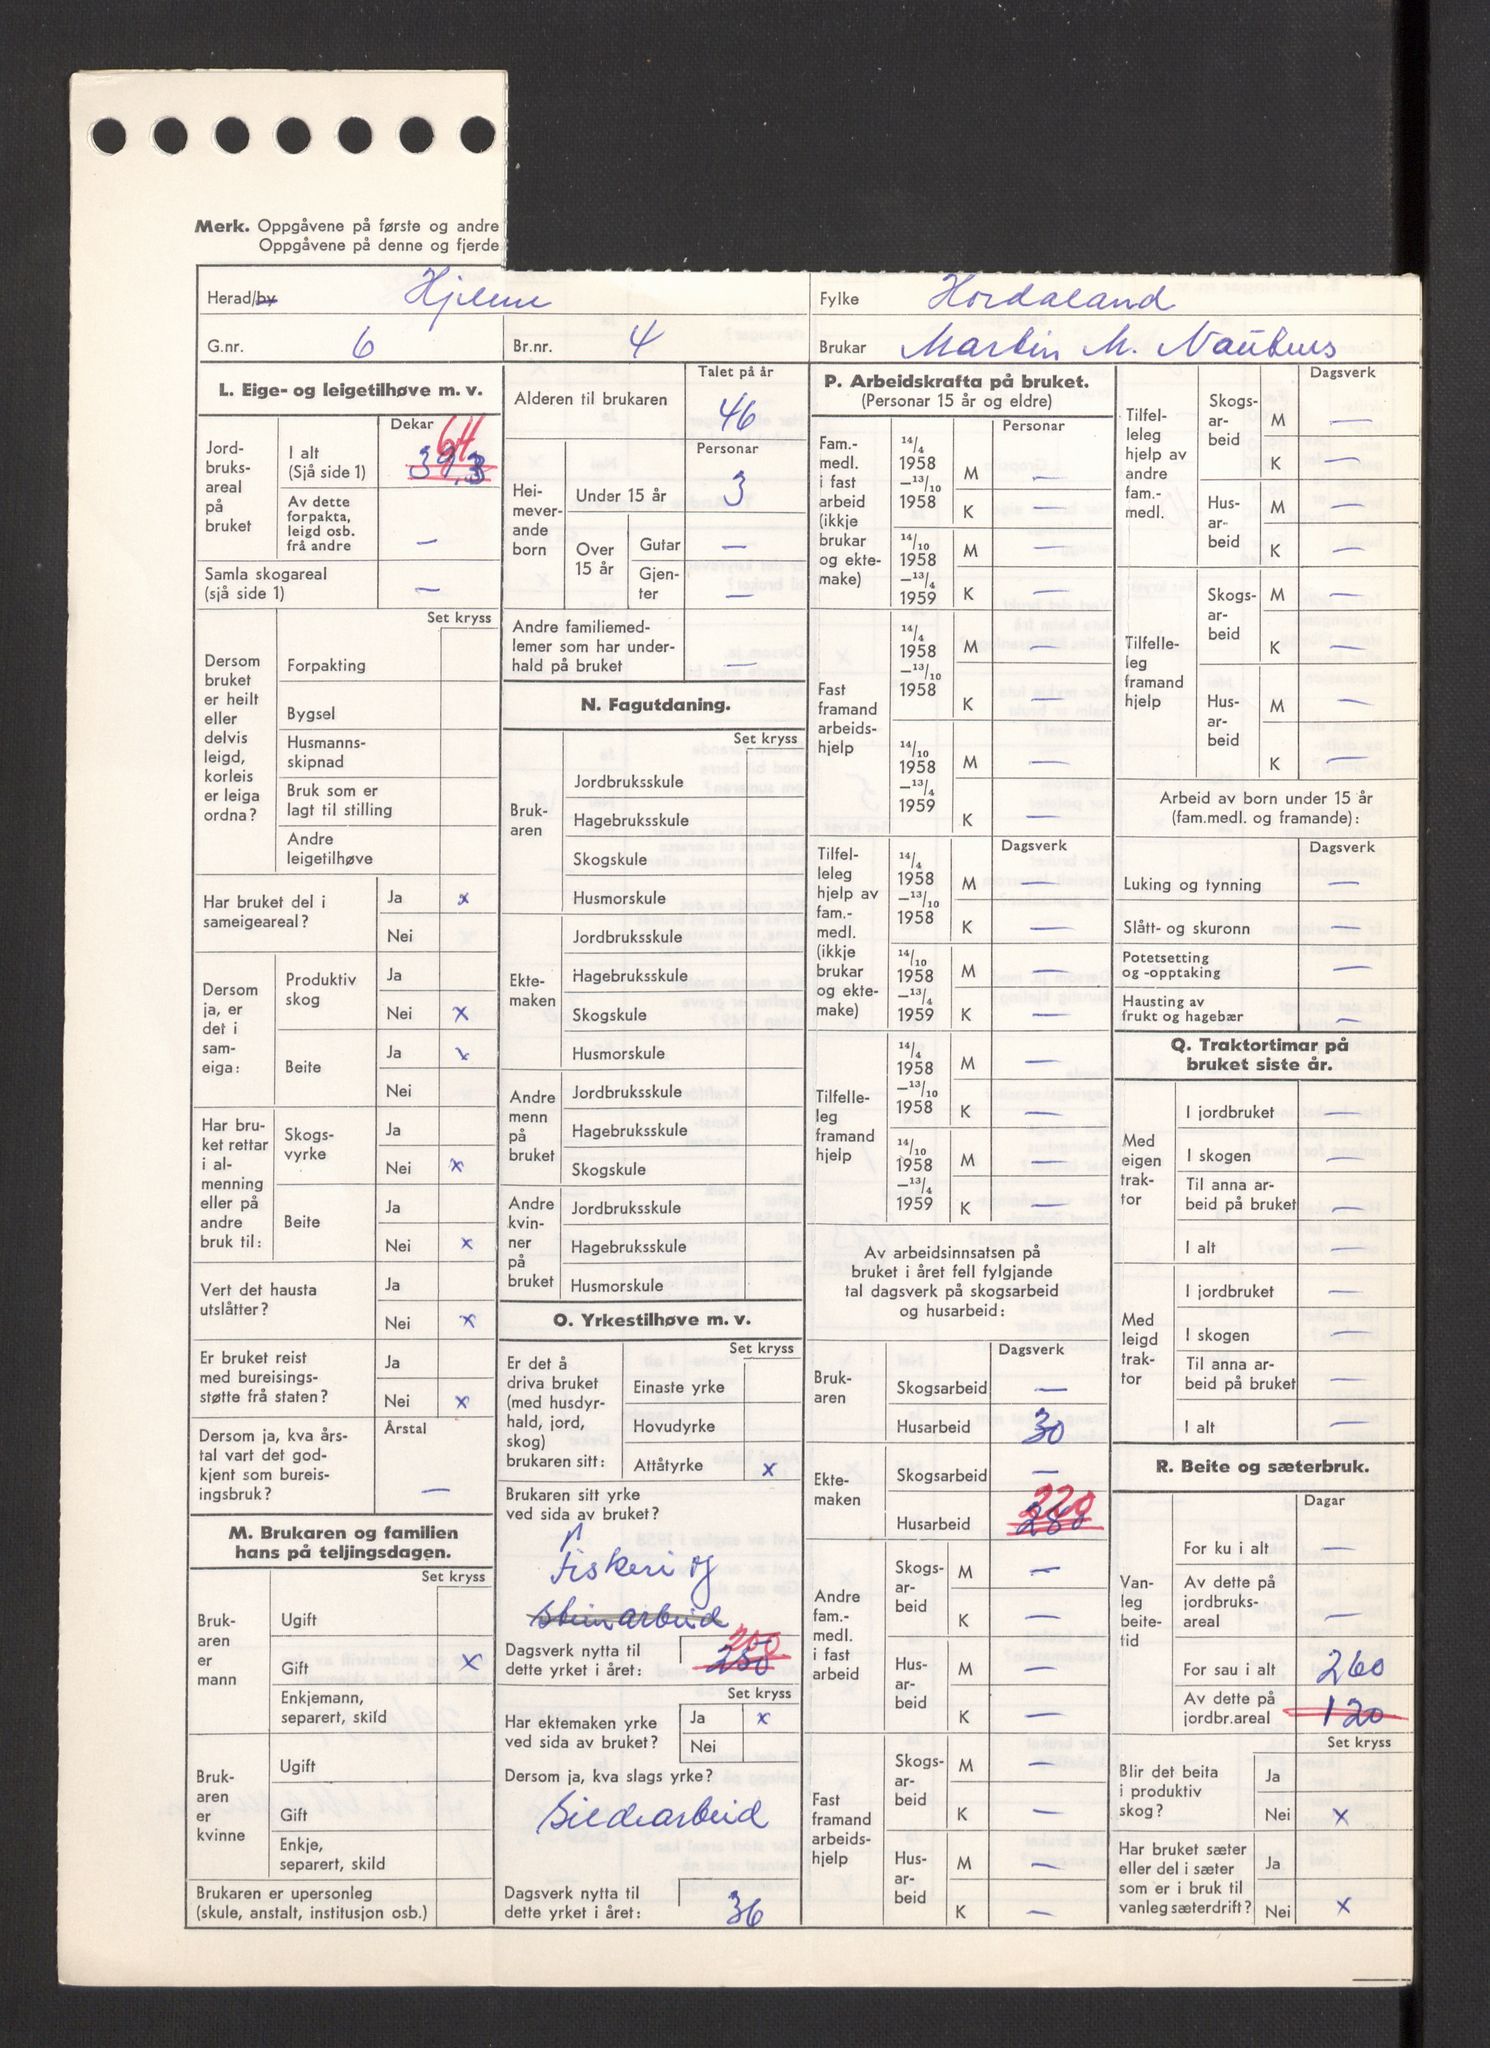 Merk. Oppgåvene på første og andre
Oppgåvene på denne og fjerde
Herad/by Hjelme
Fylke Hordaland
G.nr. 6
Br.nr. 4
Brukar Martin M. Nautnes
L. Eige- og leigetilhøve m. v.
Dekar
Jord-
bruks-
areal
på
bruket
I alt
(Sjå side 1)
64
39,3
Av dette
forpakta,
leigd osb.
frå andre —
Samla skogareal
(sjå side 1) —
Set kryss
Dersom
bruket
er heilt
eller
delvis
leigd,
korleis
er leiga
ordna?
Forpakting
Bygsel
Husmanns-
skipnad
Bruk som er
lagt til stilling
Andre
leigetilhøve
Har bruket del i
sameigeareal?
Ja x
Nei
Dersom
ja, er
det i
sam-
eiga:
Produktiv
skog
Ja
Nei x
Beite
Ja x
Nei
Har bru-
ket rettar
i al-
menning
eller på
andre
bruk til:
Skogs-
vyrke
Ja
Nei x
Beite
Ja
Nei x
Vert det hausta
utslåtter?
Ja
Nei x
Er bruket reist
med bureisings-
støtte frå staten?
Ja
Nei x
Dersom ja, kva års-
tal vart det god-
kjent som bureis-
ingsbruk?
Årstal
—
M. Brukaren og familien
hans på teljingsdagen.
Set kryss
Bruk-
aren
er
mann
Ugift
Gift x
Enkjemann,
separert, skild
Bruk-
aren
er
kvinne
Ugift
Gift
Enkje,
separert, skild
Brukaren er upersonleg
(skule, anstalt, institusjon osb.)
Talet på år
Alderen til brukaren 46
Personar
Hei-
mever-
ande
born
Under 15 år 3
Over
15 år
Gutar —
Gjen-
ter —
Andre familiemed-
lemer som har under-
hald på bruket —
N. Fagutdaning.
Set kryss
Bruk-
aren
Jordbruksskule
Hagebruksskule
Skogskule
Husmorskule
Ekte-
maken
Jordbruksskule
Hagebruksskule
Skogskule
Husmorskule
Andre
menn
på
bruket
Jordbruksskule
Hagebruksskule
Skogskule
Andre
kvin-
ner
på
bruket
Jordbruksskule
Hagebruksskule
Husmorskule
O. Yrkestilhøve m. v.
Set kryss
Er det å
driva bruket
(med husdyr-
hald, jord,
skog)
brukaren sitt:
Einaste yrke
Hovudyrke
Attåtyrke x
Brukaren sitt yrke
ved sida av bruket?
Fiskeri og
steinarbeid
Dagsverk nytta til
dette yrket i året:
200
250
Set kryss
Har ektemaken yrke
ved sida av bruket?
Ja x
Nei
Dersom ja, kva slags yrke?
Sildearbeid
Dagsverk nytta til
dette yrket i året: 36
P. Arbeidskrafta på bruket.
(Personar 15 år og eldre)
Personar
Fam.-
medl.
i fast
arbeid
(ikkje
brukar
og ekte-
make)
14/4
1958
—13/10
1958
M —
K —
14/10
1958
—13/4
1959
M —
K —
Fast
framand
arbeids-
hjelp
14/4
1958
—13/10
1958
M —
K —
14/10
1958
—13/4
1959
M —
K —
Dagsverk
Tilfel-
leleg
hjelp av
fam.-
medl.
(ikkje
brukar
og ekte-
make)
14/4
1958
—13/10
1958
M —
K —
14/10
1958
—13/4
1959
M —
K —
Tilfelle-
leg
framand
hjelp
14/4
1958
—13/10
1958
M —
K —
14/10
1958
—13/4
1959
M —
K —
Av arbeidsinnsatsen på
bruket i året fell fylgjande
tal dagsverk på skogsarbeid
og husarbeid:
Dagsverk
Bruk-
aren
Skogsarbeid —
Husarbeid 30
Ekte-
maken
Skogsarbeid —
Husarbeid
220
280
Andre
fam.-
medl.
i fast
arbeid
Skogs-
ar-
beid
M —
K —
Hus-
ar-
beid
M —
K —
Fast
framand
arbeids-
hjelp
Skogs-
ar-
beid
M —
K —
Hus-
ar-
beid
M —
K —
Dagsverk
Tilfel-
leleg
hjelp av
andre
fam.-
medl.
Skogs-
ar-
beid
M —
K —
Hus-
ar-
beid
M —
K —
Tilfelle-
leg
framand
hjelp
Skogs-
ar-
beid
M —
K —
Hus-
ar-
beid
M —
K —
Arbeid av born under 15 år
(fam.medl. og framande):
Dagsverk
Luking og tynning —
Slått- og skuronn —
Potetsetting
og -opptaking —
Hausting av
frukt og hagebær —
Q. Traktortimar på
bruket siste år.
Med
eigen
trak-
tor
I jordbruket —
I skogen —
Til anna ar-
beid på bruket —
I alt —
Med
leigd
trak-
tor
I jordbruket —
I skogen —
Til anna ar-
beid på bruket —
I alt —
R. Beite og sæterbruk.
Dagar
Van-
leg
beite-
tid
For ku i alt —
Av dette på
jordbruks-
areal —
For sau i alt 260
Av dette på
jordbr.areal 120
Set kryss
Blir det beita
i produktiv
skog?
Ja
Nei x
Har bruket sæter
eller del i sæter
som er i bruk til
vanleg sæterdrift?
Ja
Nei x